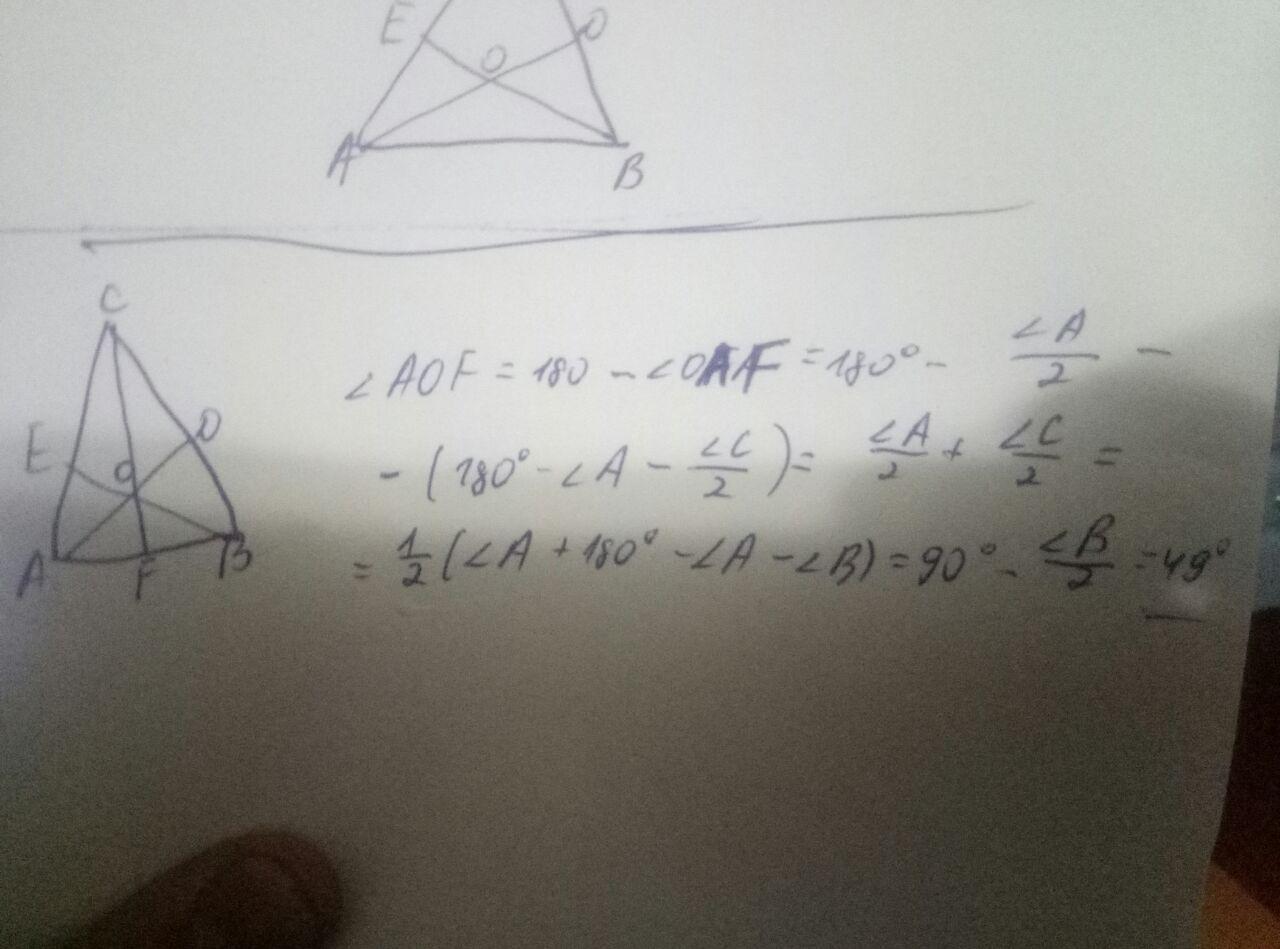 E
D
O
A
B
C
E
D
O
A
F
B
∠AOF = 180 - ∠OAF = 180° - ∠A/2 -
- (180° - ∠A - ∠C/2) = ∠A/2 + ∠C/2 =
= 1/2 (∠A + 180° - ∠A - ∠B) = 90° - ∠B/2 = 49°